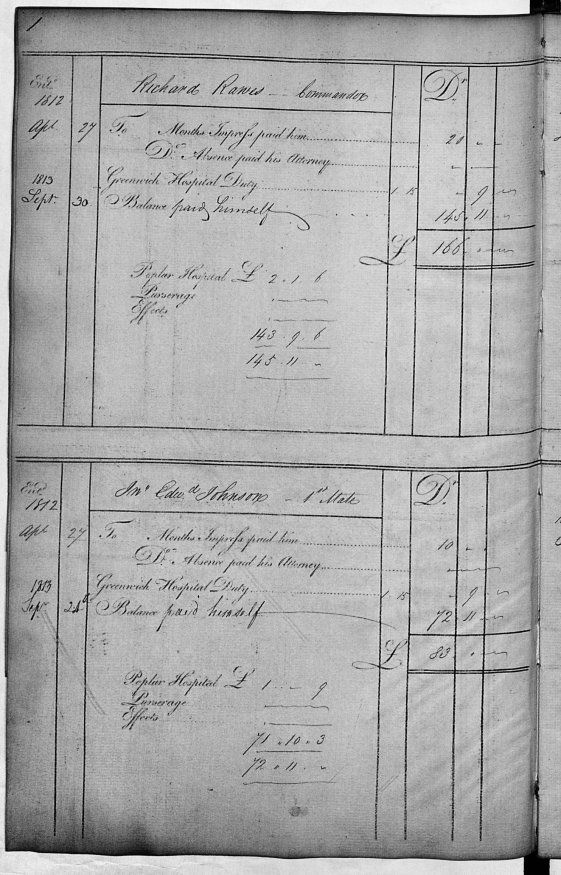 1
Entd
1812
Richard Rawes — Commander Dr
Apl 27 To Months Imprest paid him 20 " "
Do Absence paid his Attorney " — —
Greenwich Hospital Duty 1 15 " 9 "
1813
Sept. 30 Balance paid himself 145 11 "
£ 166 " "
Poplar Hospital £ 2 . 1 . 6
Purserage
Effects
143 . 9 . 6
145 . 11 . "
Entd
1812
Jno Edwd Johnson — 1st Mate Dr
Apl 27 To Months Imprest paid him 10 " "
Do Absence paid his Attorney
Greenwich Hospital Duty 1 15 " 9 "
1813
Sepr Balance paid himself 72 11 "
£ 83 " "
Poplar Hospital £ 1 . — 9
Purserage
Effects
71 . 10 . 3
72 . 11 . "